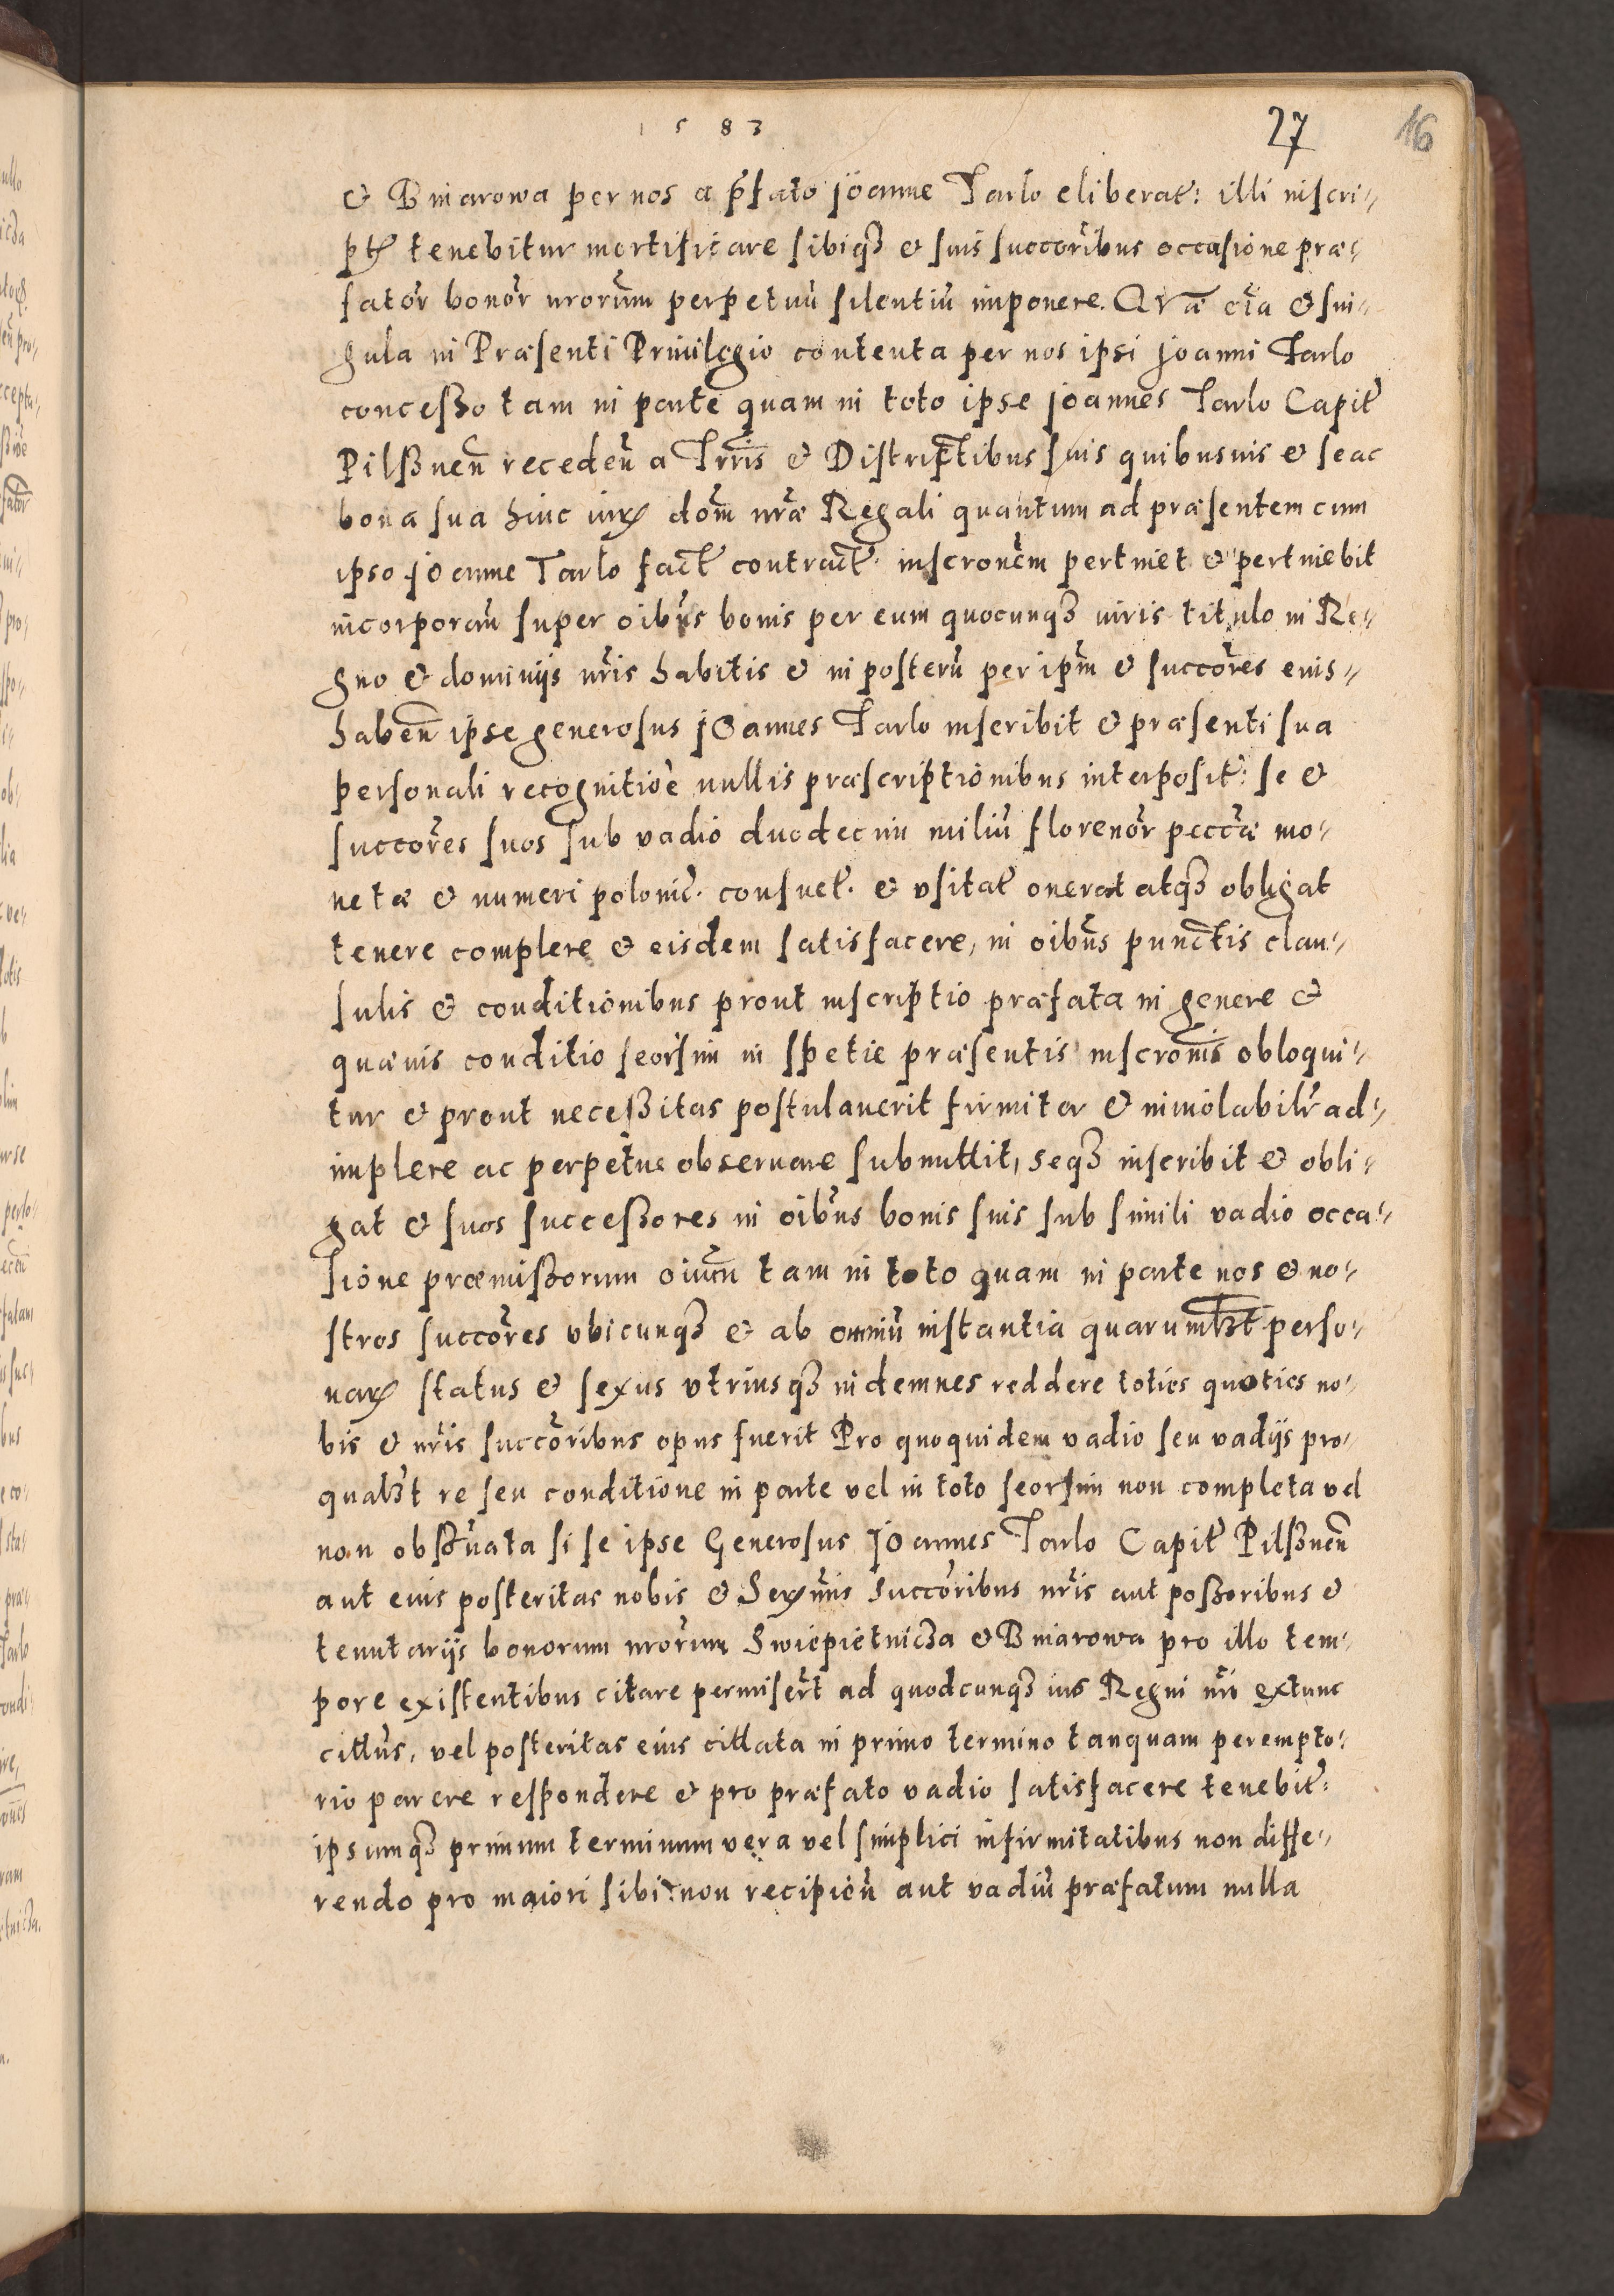 1583
27 16
& Binarowa per nos a p̃fato joanne Tarlo eliberat̃: illi inscri⸗
ptꝝ tenebitur mortificare sibiqꝫ & suis succoribus occasione præ⸗
fator̃ bonor̃ nr̃orum perpetuũ silentiũ imponere. Quæ oĩa & sin⸗
gula in Præsenti Priuilegio contenta per nos ipsi joanni Tarlo
conceßo tam in parte quam in toto ipse joannes Tarlo Capit̃
Pilßneñ recedeñ a Trr̃is & Districtibus suis quibusuis & se ac
bona sua huic iurꝫ dom̃ nr̃æ Regali quantum ad præsentem cum
ipso joanne Tarlo fact̃ contract̃ inscronẽm pertinet & pertinebit
incorporañ super oibũs bonis per eum quocunqꝫ iuris titulo in Re⸗
gno & dominijs nr̃is habitis & in posterũ per ipm̃ & succores eius⸗
habeñ ipse generosus joannes Tarlo inscribit & præsenti sua
personali recognitioẽ nullis præscriptionibus interposit̃: se &
succores suos sub vadio duodecim miliũ florenor̃ peccr̃æ mo⸗
netæ & numeri polonic̃. consuet̃. & vsitat̃ onerat atqꝫ obligat
tenere complere & eisdem satisfacere, in oibũs punctis clau⸗
sulis & conditionibus prout inscriptio præfata in genere &
quæuis conditio seorsim in spetie præsentis inscronĩs obloqui⸗
tur & prout neceßitas postulauerit firmiter & inuiolabilr̃ ad⸗
implere ac perpetuo obseruare submittit, seqꝫ inscribit & obli⸗
gat & suos succeßores in oibũs bonis suis sub simili vadio occa⸗
sione præmißorum oiũm tam in toto quam in parte nos & no⸗
stros succores vbicunqꝫ & ab omniũ instantia quarumlꝫt perso⸗
narꝫ status & sexus vtriusqꝫ indemnes reddere toties quoties no⸗
bis & nr̃is succoribus opus fuerit Pro quoquidem vadio seu vadijs pro⸗
qualꝫt re seu conditione in parte vel in toto seorsim non completa vel
non obser̃uata si se ipse Generosus joannes Tarlo Capit̃ Pilßneñ
aut eius posteritas nobis & Serꝫmis succoribus nr̃is aut poßoribus &
tenutarijs bonorum nr̃orum Swiepietnicza & Binarowa pro illo tem⸗
pore existentibus citare permiser̃t ad quodcunqꝫ ius Regni nr̃i extunc
cittũs, vel posteritas eius cittata in primo termino tanquam perempto⸗
rio parere respondere & pro præfato vadio satisfacere tenebit̃:
ipsumqꝫ primum terminum vera vel simplici infirmitatibus non diffe⸗
rendo pro maiori sibi non recipieñ aut vadiũ præfatum nulla